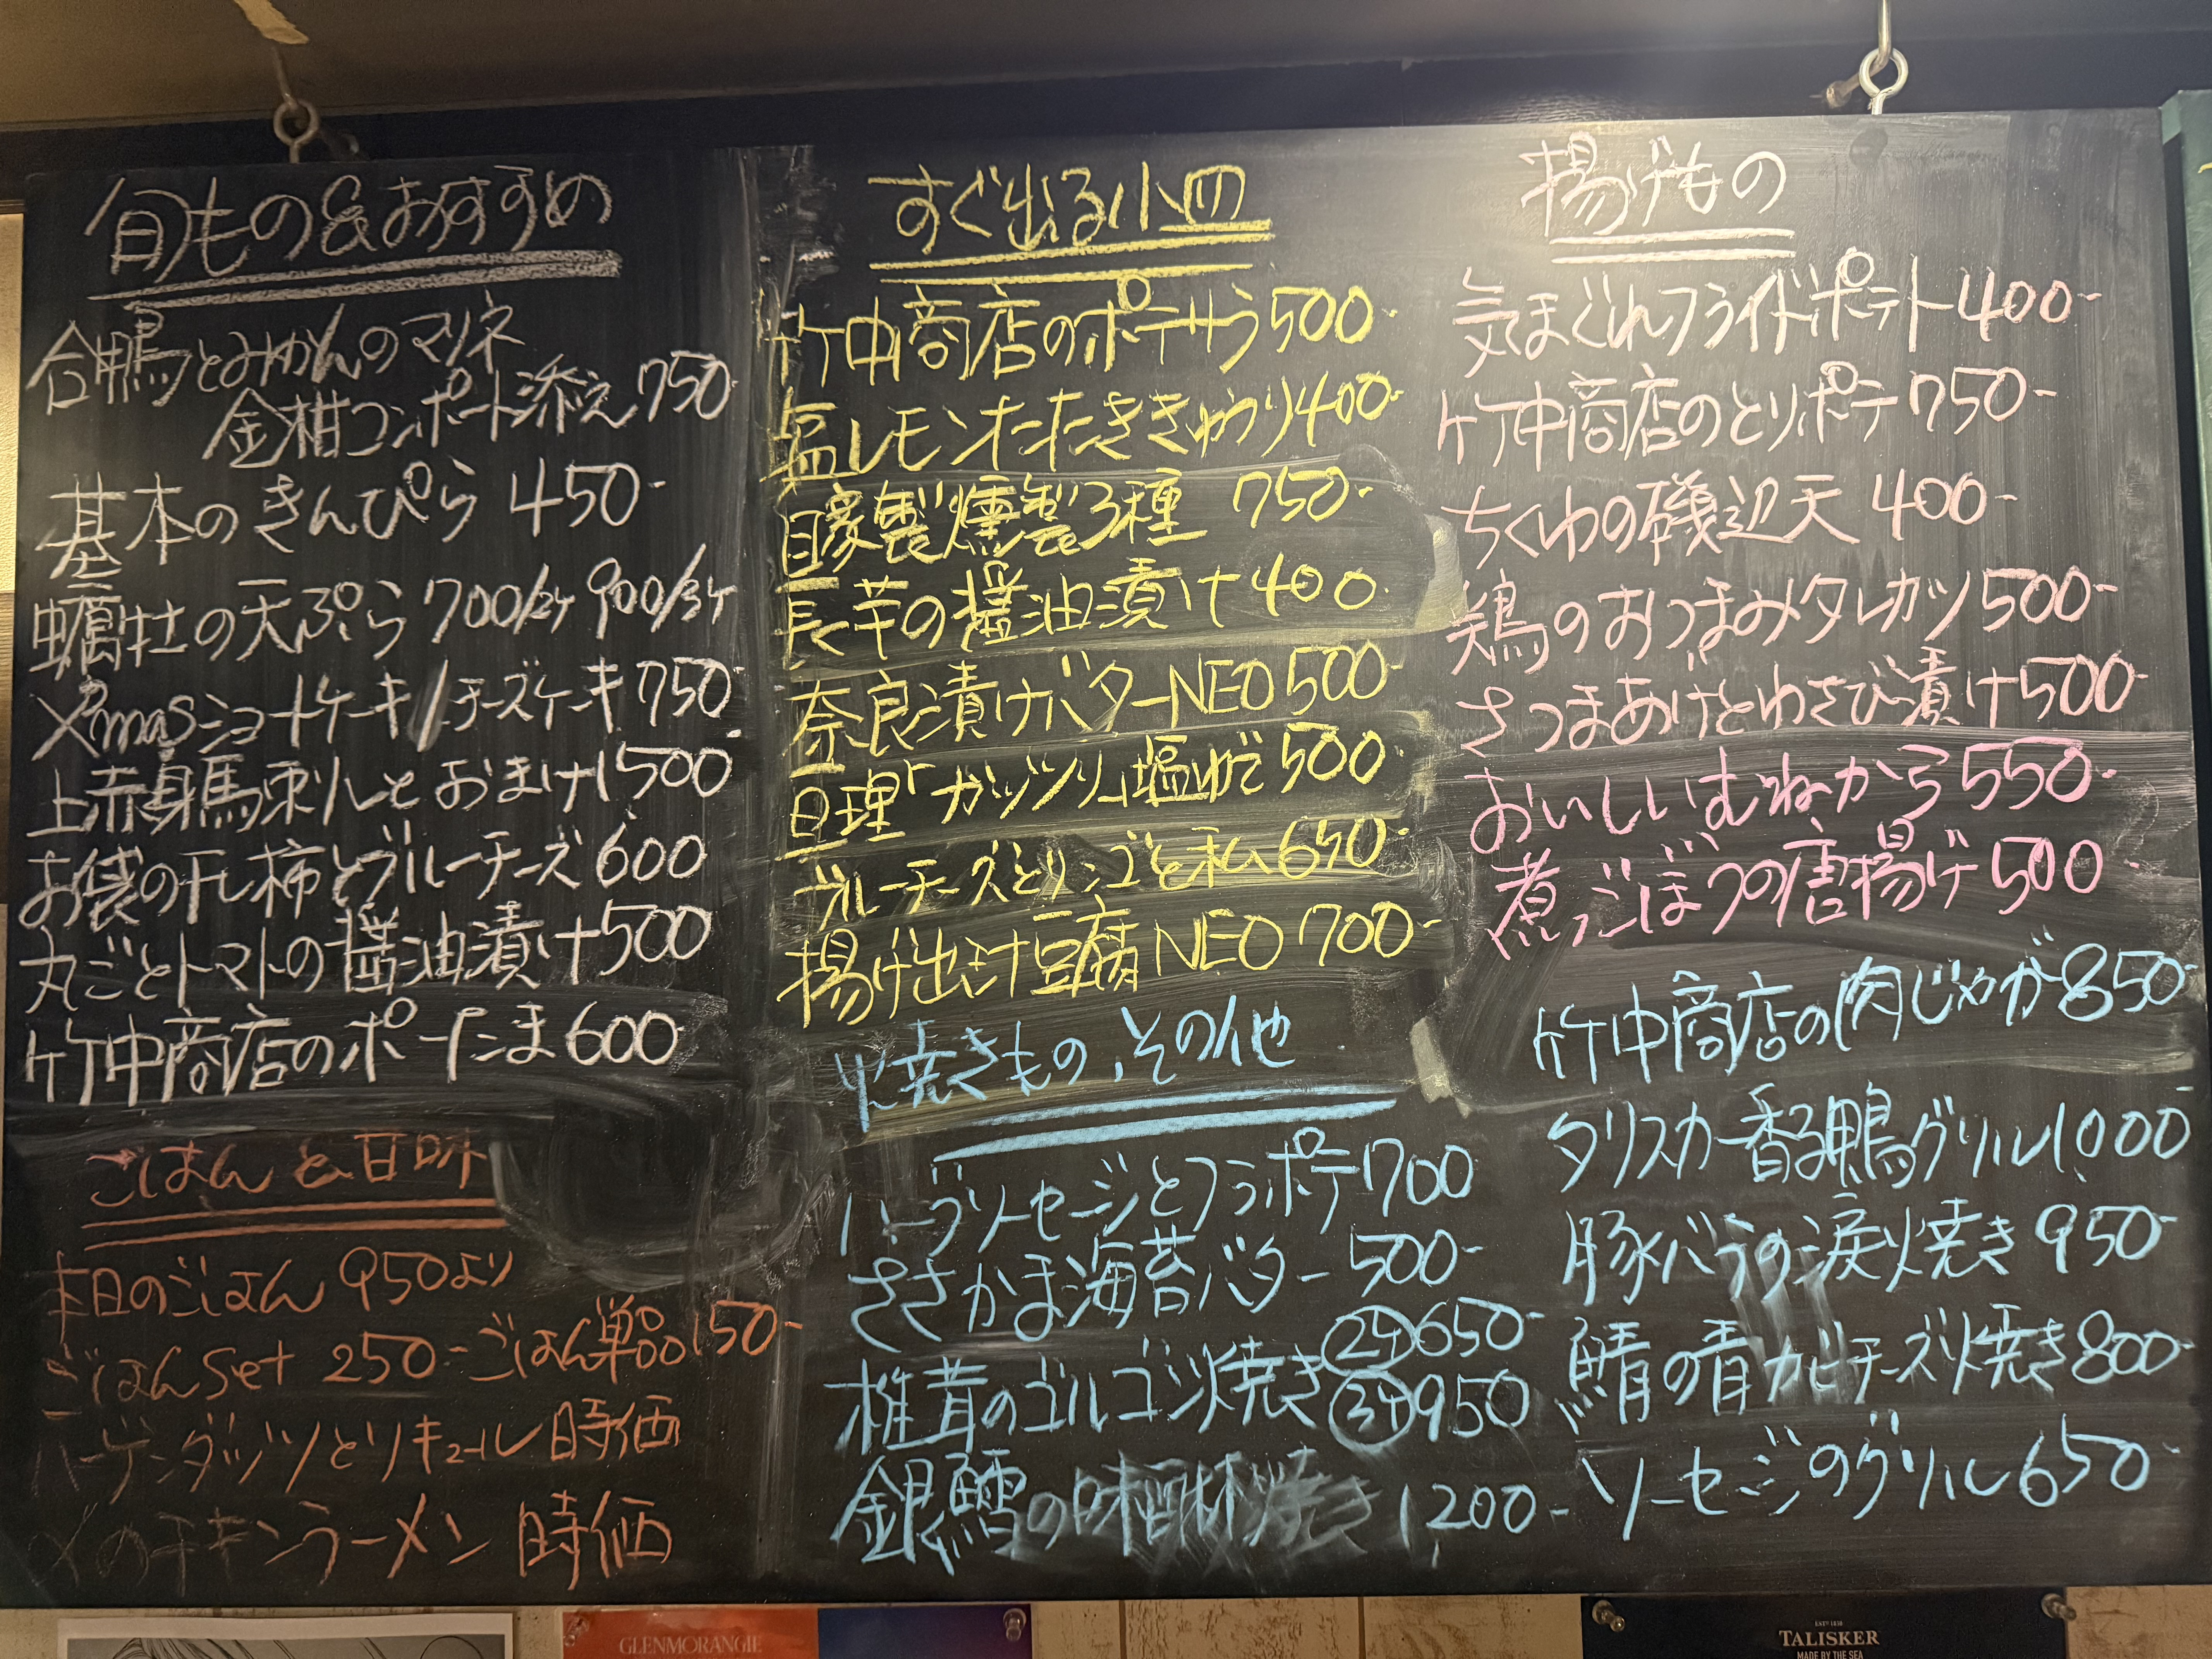 旬もの&おすすめ
合鴨とみかんのマリネ
金柑コンポート添え750-
基本のきんぴら 450-
牡蠣の天ぷら 700/2ケ 900/3ケ
X'masショートケーキ/チーズケーキ750-
上赤身馬刺しとおまけ1,500-
お袋の干し柿とブルーチーズ600
丸ごとトマトの醤油漬け500
竹中商店のポーたま600-
ごはんと甘味
本日のごはん 950より
ごはんset 250- ごはん単品150-
ハーゲンダッツとリキュール 時価
〆のチキンラーメン 時価
すぐ出る小皿
竹中商店のポテサラ500-
塩レモンたたききゅうり400-
自家製燻製3種 750-
長芋の醤油漬け400
奈良漬けバターNEO500-
亘理「ガッツリ」塩ゆで500-
ブルーチーズとリンゴと私650-
揚げ出汁豆腐NEO700-
焼きもの、その他
ハーブソーセージとフラポテ700
ささかま海苔バター500-
椎茸のゴルゴン焼き②ケ650-
③ケ950
銀鱈の味醂焼き 1,200-
揚げもの
気まぐれフライドポテト400-
竹中商店のとりポテ750-
ちくわの磯辺天400-
鶏のおつまみタレカツ500-
さつまあげとわさび漬け500-
おいしいむねから550-
煮ごぼうの唐揚げ500-
竹中商店の肉じゃが850-
タリスカー香る鴨グリル1,000
豚バラの涙焼き950-
鯖の青カビチーズ焼き800-
ソーセージのグリル650-
GLENMORANGIE
ESTD 1830
TALISKER
MADE BY THE SEA